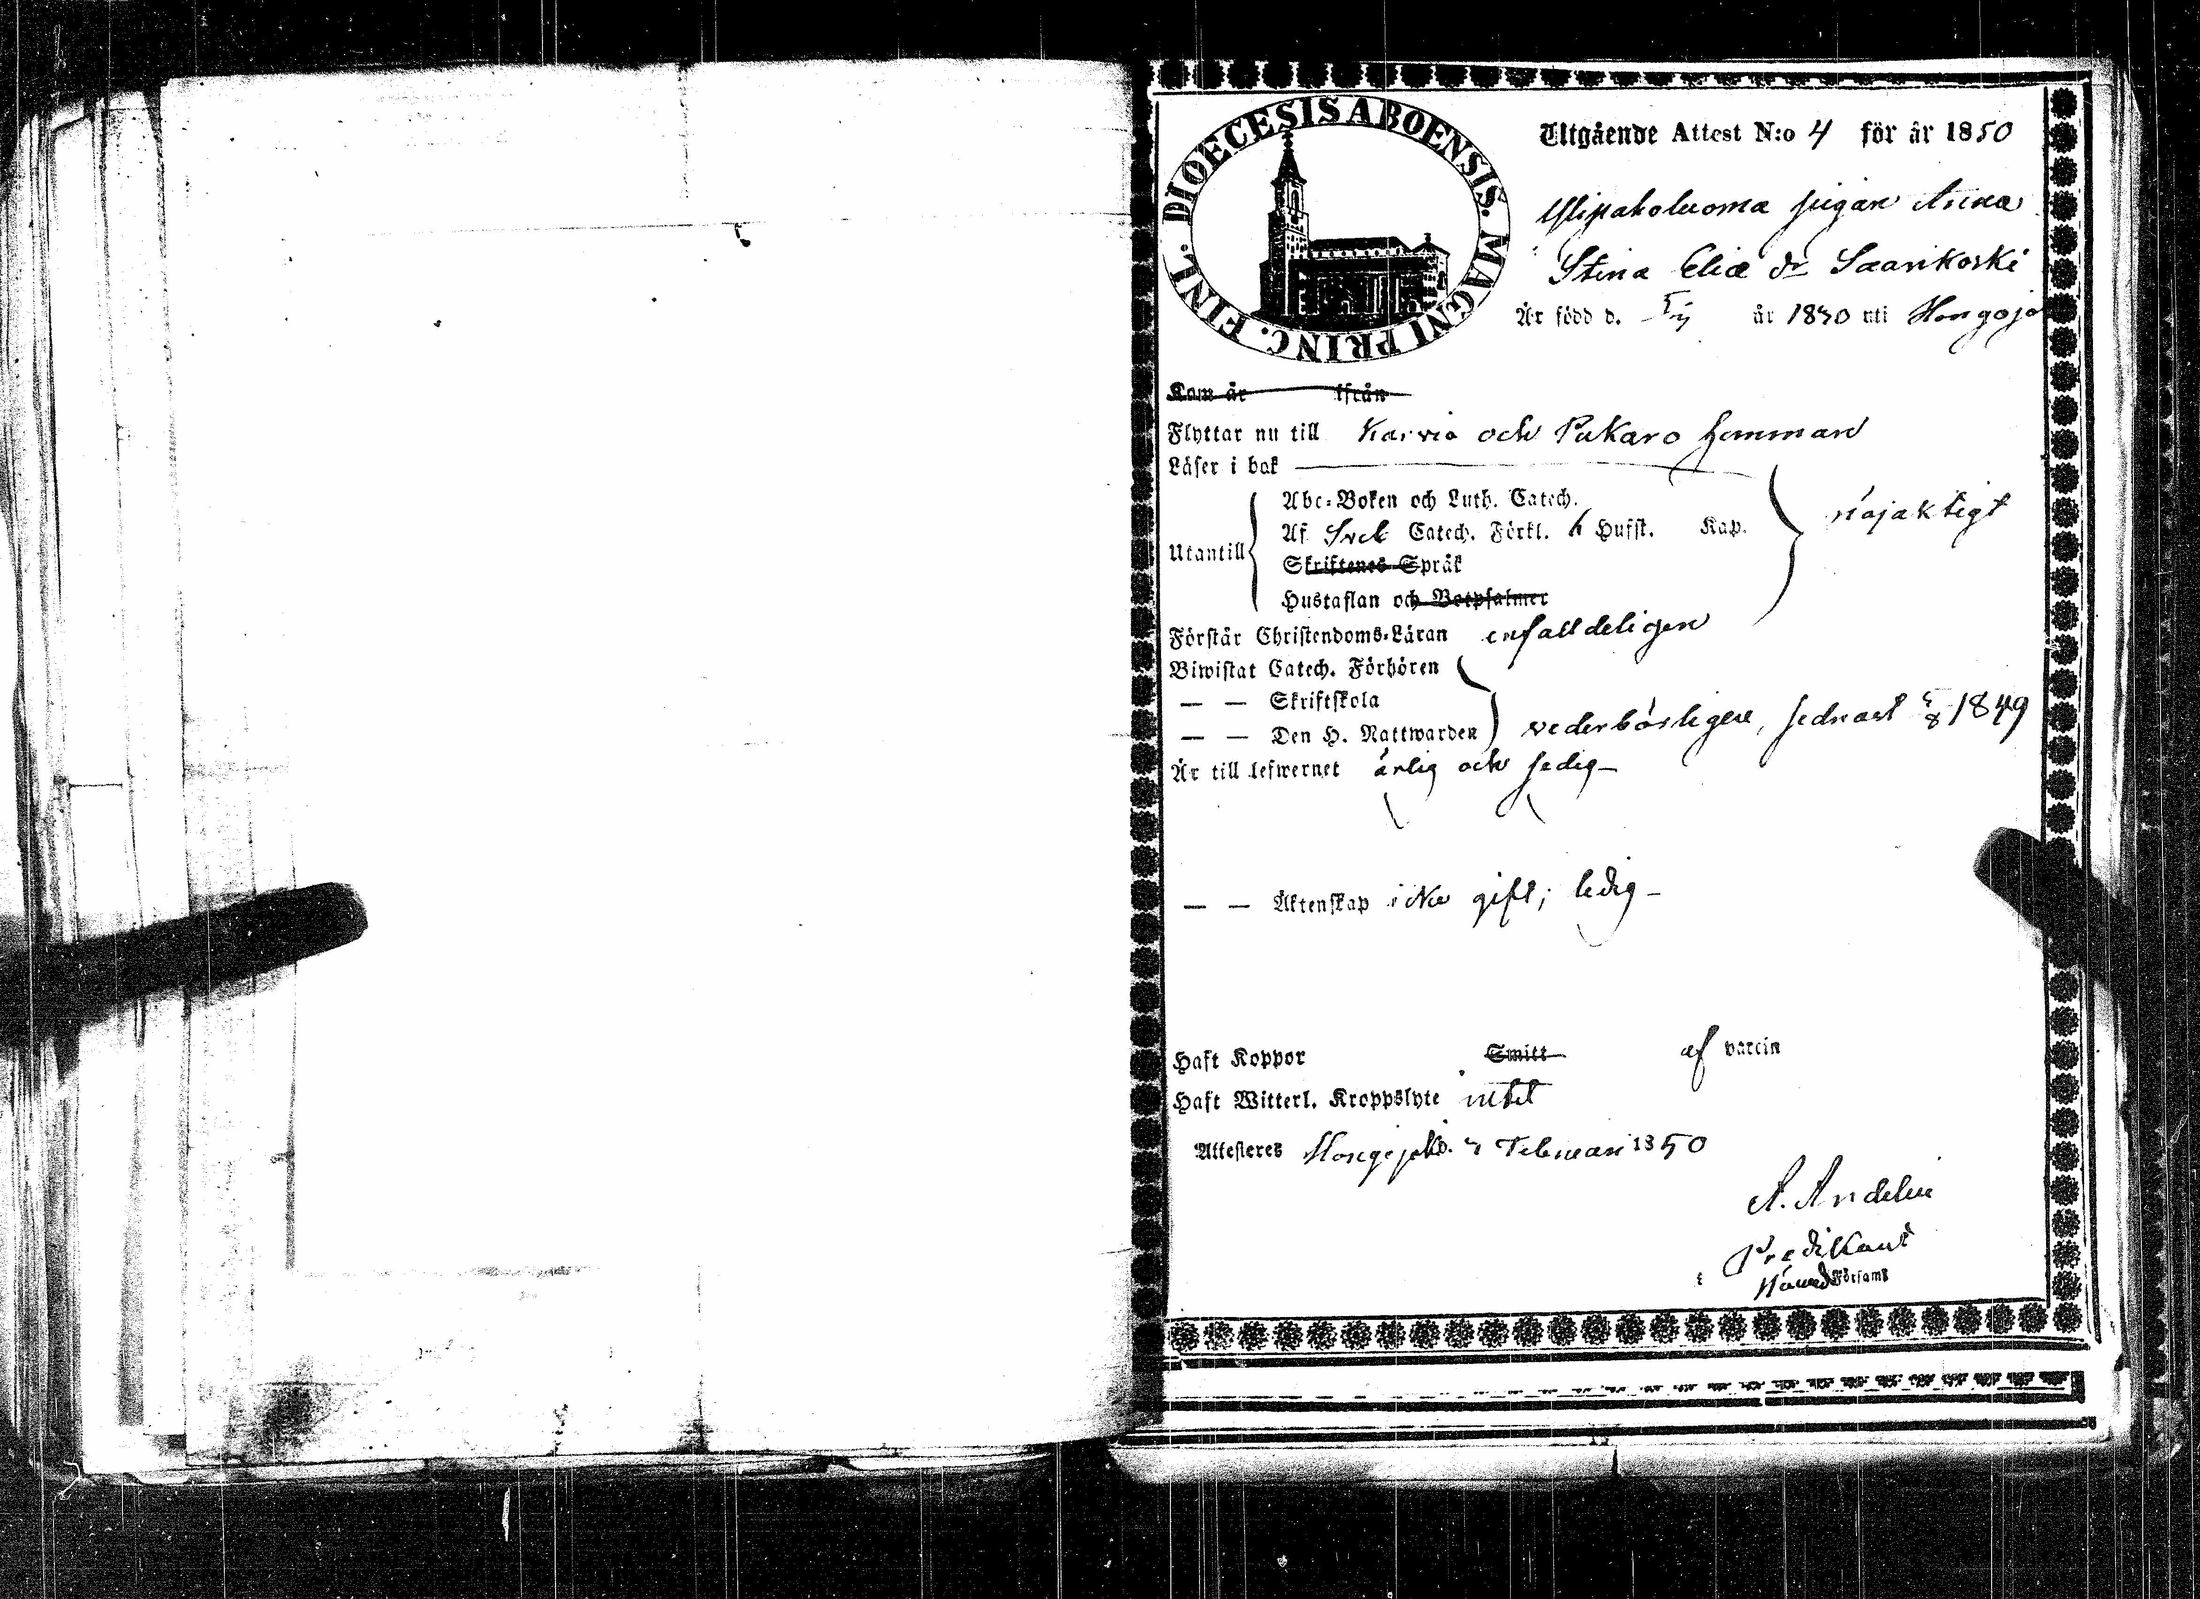 DIOECESIS ABOENSIS. MAGNI PRINC. FINL.
Utgående Attest N:o 4 för år 1850
pigan Anna
Stina Eliæ dr Saarikoski
Är född d. år 1830 uti Hongojo
Kom år ifrån
Flyttar nu till Karvia och Pukaro hemman
Läser i bok
Utantill
Abc-Boken och Luth. Catech.
Af Sveb Catech. Förkl. 6 Hufst. Kap.
nöjaktigt
Skriftenes Språk
Hustaflan och Botpsalmer
Förstår Christendoms-Läran enfalldeligen
Biwistat Catech. Förhören
— — Skriftskola
— — Den H. Nattwarden vederbörligen, sednast 5/8 1849
Är till lefwernet ärlig och sedig
— — Äktenskap icke gift; ledig
Haft Koppor Smitt af vaccin
Haft Witterl. Kroppslyte intet
Attesteres Hongojoki d. Februari 1850
A. Andelin
Predikant
i Församl